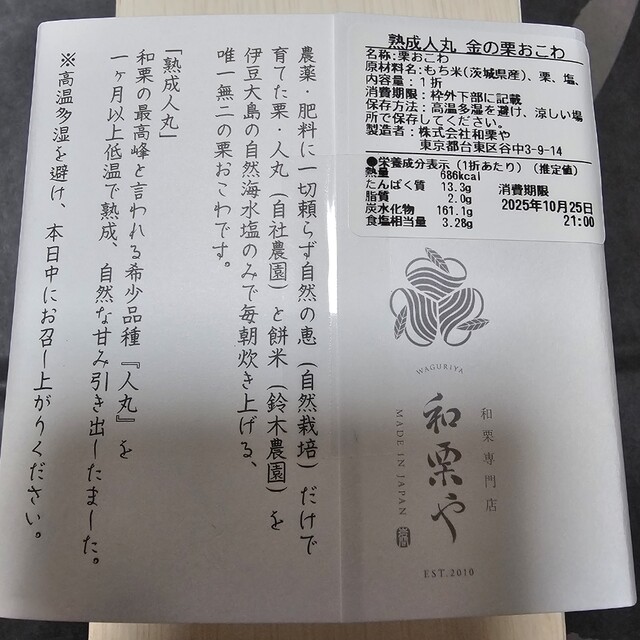 熟成人丸 金の栗おこわ
名称:栗おこわ
原材料名:もち米(茨城県産)、栗、塩、
内容量:1折
消費期限:枠外下部に記載
保存方法:高温多湿を避け、涼しい場
所で保存してください。
製造者:株式会社和栗や
東京都台東区谷中3-9-14
●栄養成分表示(1折あたり)(推定値)
熱量 686kcal
たんぱく質 13.3g
脂質 2.0g
炭水化物 161.1g
食塩相当量 3.28g
消費期限
2025年10月25日
21:00
WAGURIYA
和栗専門店
和栗や
MADE IN JAPAN
EST.2010
農薬・肥料に一切頼らず自然の恵(自然栽培)だけで
育てた栗・人丸(自社農園)と餅米(鈴木農園)を
伊豆大島の自然海水塩のみで毎朝炊き上げる、
唯一無二の栗おこわです。
「熟成人丸」
和栗の最高峰と言われる希少品種『人丸』を
一ヶ月以上低温で熟成、自然な甘み引き出しました。
※高温多湿を避け、本日中にお召し上がりください。